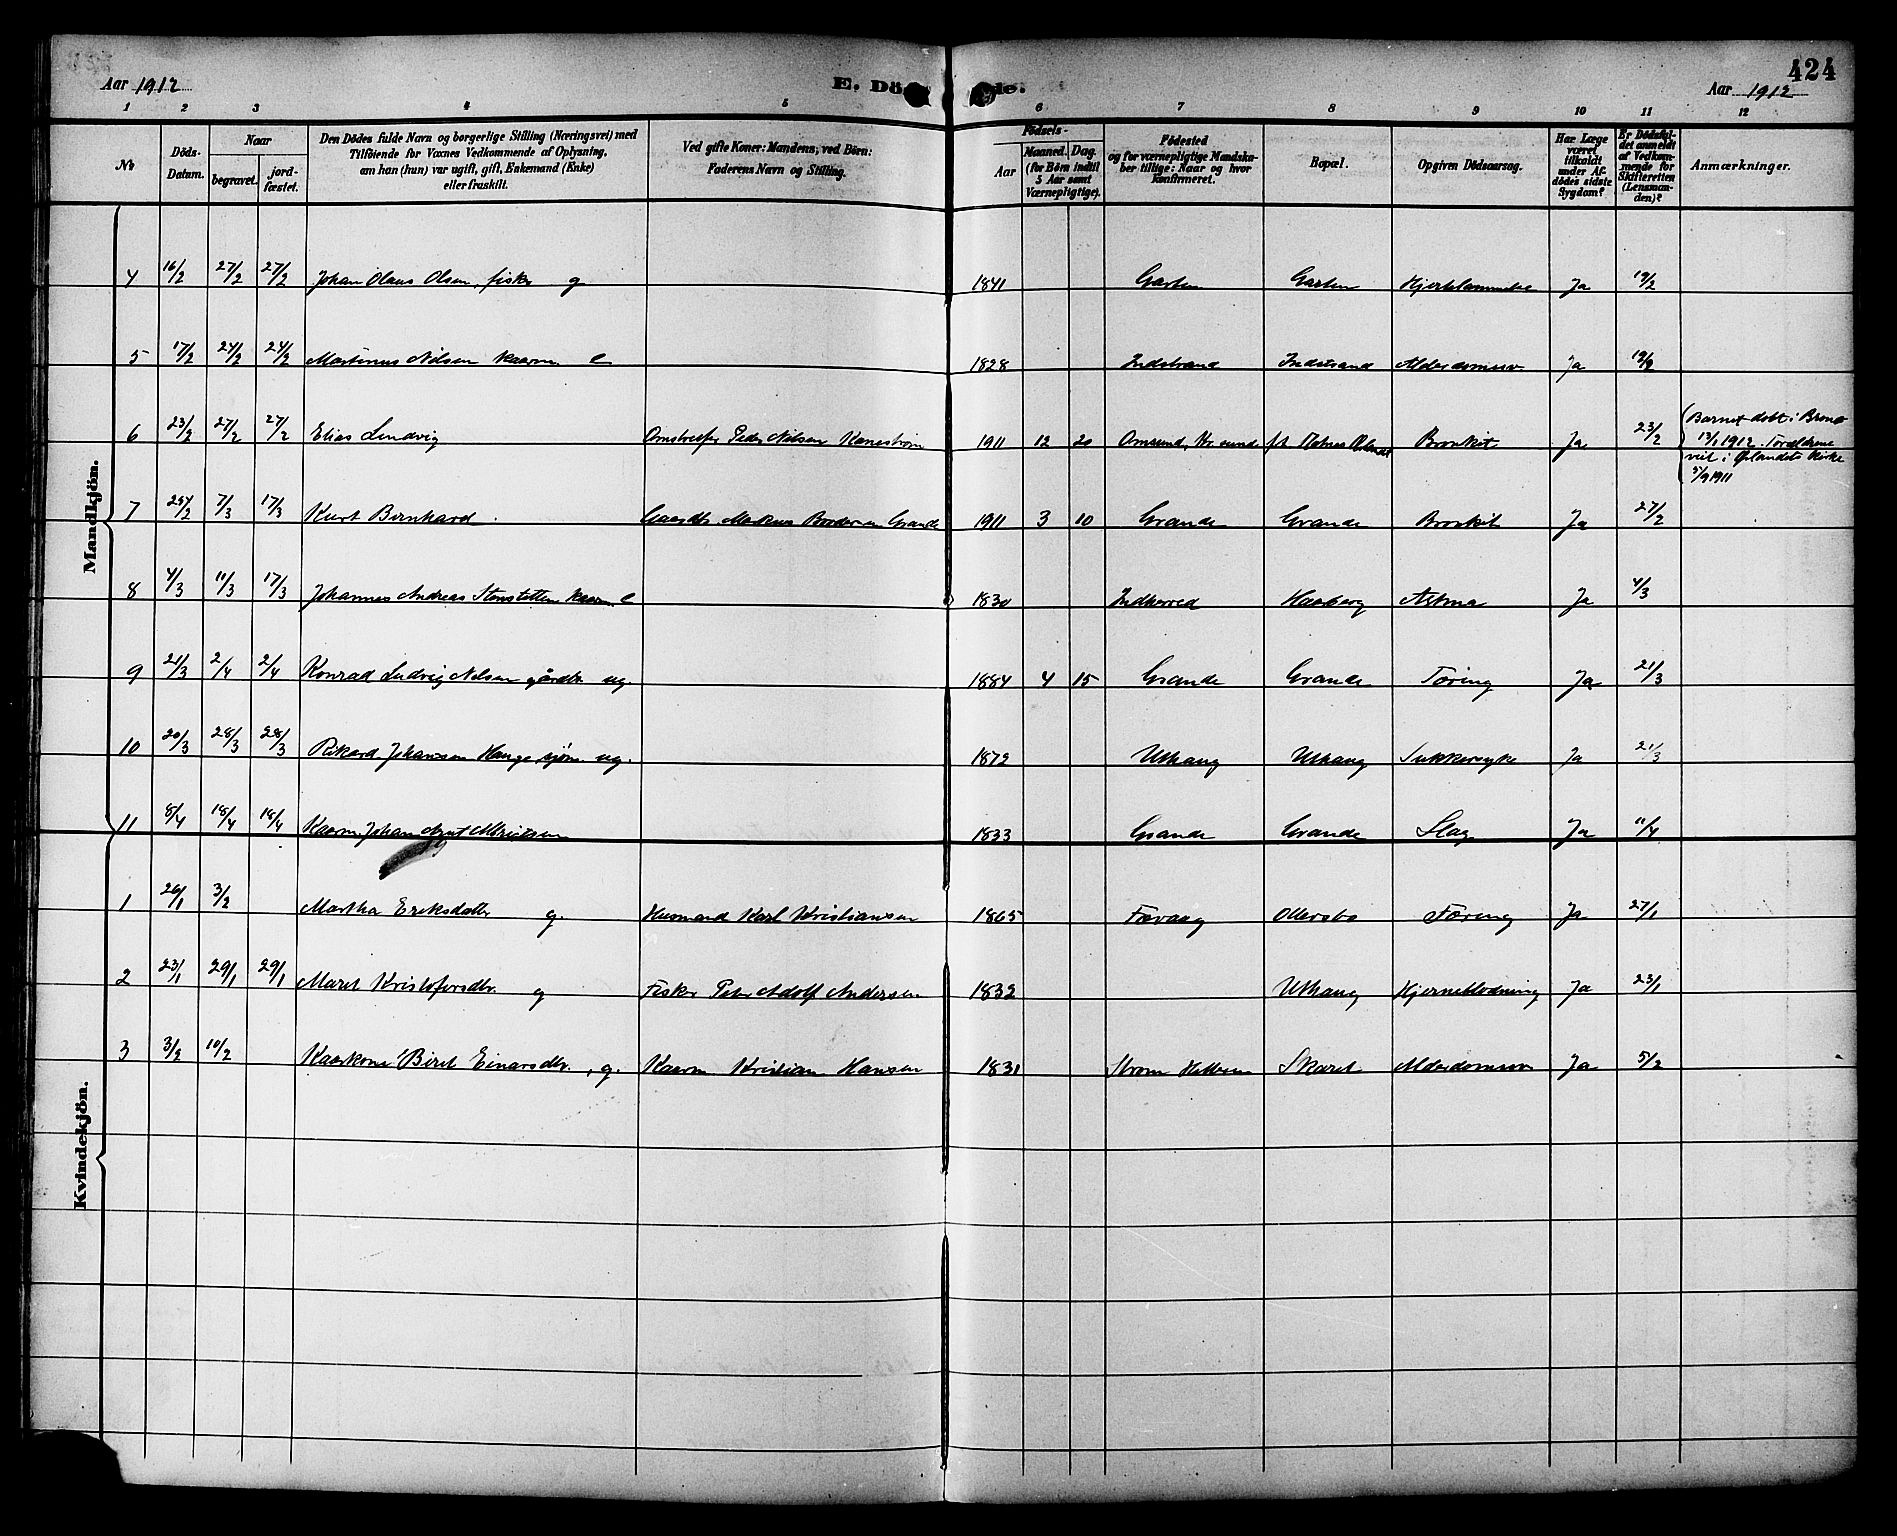 Aar 1912
E. Dö de.
424
Aar 1912
1 2 3 4 5 6 7 8 9 10 11 12
No
Döds-Datum.
Naar
begravet.
jord-fæstet.
Den Dödes fulde Navn og borgerlige Stilling (Næringsvei) med
Tilföiende for Voxnes Vedkommende af Oplysning,
om han (hun) var ugift, gift, Enkemand (Enke)
eller fraskilt.
Ved gifte Koner: Mandens; ved Börn:
Faderens Navn og Stilling.
Födsels-
Aar
Maaned. Dag.
(for Börn indtil
5 Aar samt
Værnepligtige).
Födested
og for værnepligtige Mandska-
ber tillige: Naar og hvor
konfirmeret.
Bopæl.
Opgiven Dödsaarsag.
Har Læge
været
tilkaldt
under Af-
dödes sidste
Sygdom?
Er Dödsfal-
det anmeldt
af Vedkom-
mende for
Skifteretten
(Lensman-
den)?
Anmærkninger.
Mandkjön.
4 16/2 27/2 27/2 Johan Olaus Olsen, fisker g 1841 Garten Garten Hjertelammelse Ja 19/2
5 17/2 24/2 24/2 Martinus Nilsen kaarm. e 1828 Indstrand Indstrand Alderdomssv Ja 19/2
6 23/2 27/2 27/2 Elias Lindvig Peder Nilsen 1911 12 20 Omsund, Kr.sund f.t. Bronkit Ja 23/2 Barnet döbt i
13/1 1912. Foreldrene
viet i Ørlandets Kirke
5/9 1911
7 25/2 7/3 17/3 Kurt Bernhard. Gaardbr. Grande 1911 3 10 Grande Grande Bronkit Ja 27/2
8 4/3 11/3 17/3 Johannes Andreas kaarm. e 1830 Indherred Astma Ja 4/3
9 21/3 2/4 2/4 Konrad Ludvig Nilsen gårdbr. ug. 1884 4 15 Grande Grande Tæring Ja 21/3
10 20/3 28/3 28/3 Rikard Johansen Hauge ug. 1872 Uthaug Uthaug Sukkersyke Ja 21/3
11 8/4 18/4 18/4 Kaarm. Johan 1833 Grande Grande Slag Ja 11/4
Kvindekjön.
1 26/1 3/2 Martha Eriksdatter g. Husmand Karl Kristiansen 1865 Ottersbo Tæring Ja 27/1
2 23/1 29/1 29/1 Maret Kristofersdtr. g Fisker Peter Adolf Andersen 1832 Uthaug Hjerneblødning Ja 23/1
3 3/2 10/2 Kaarkone Beret Einarsdtr., g. Kaarm Kristian Hansen 1831 Skaret Alderdomssv Ja 5/2